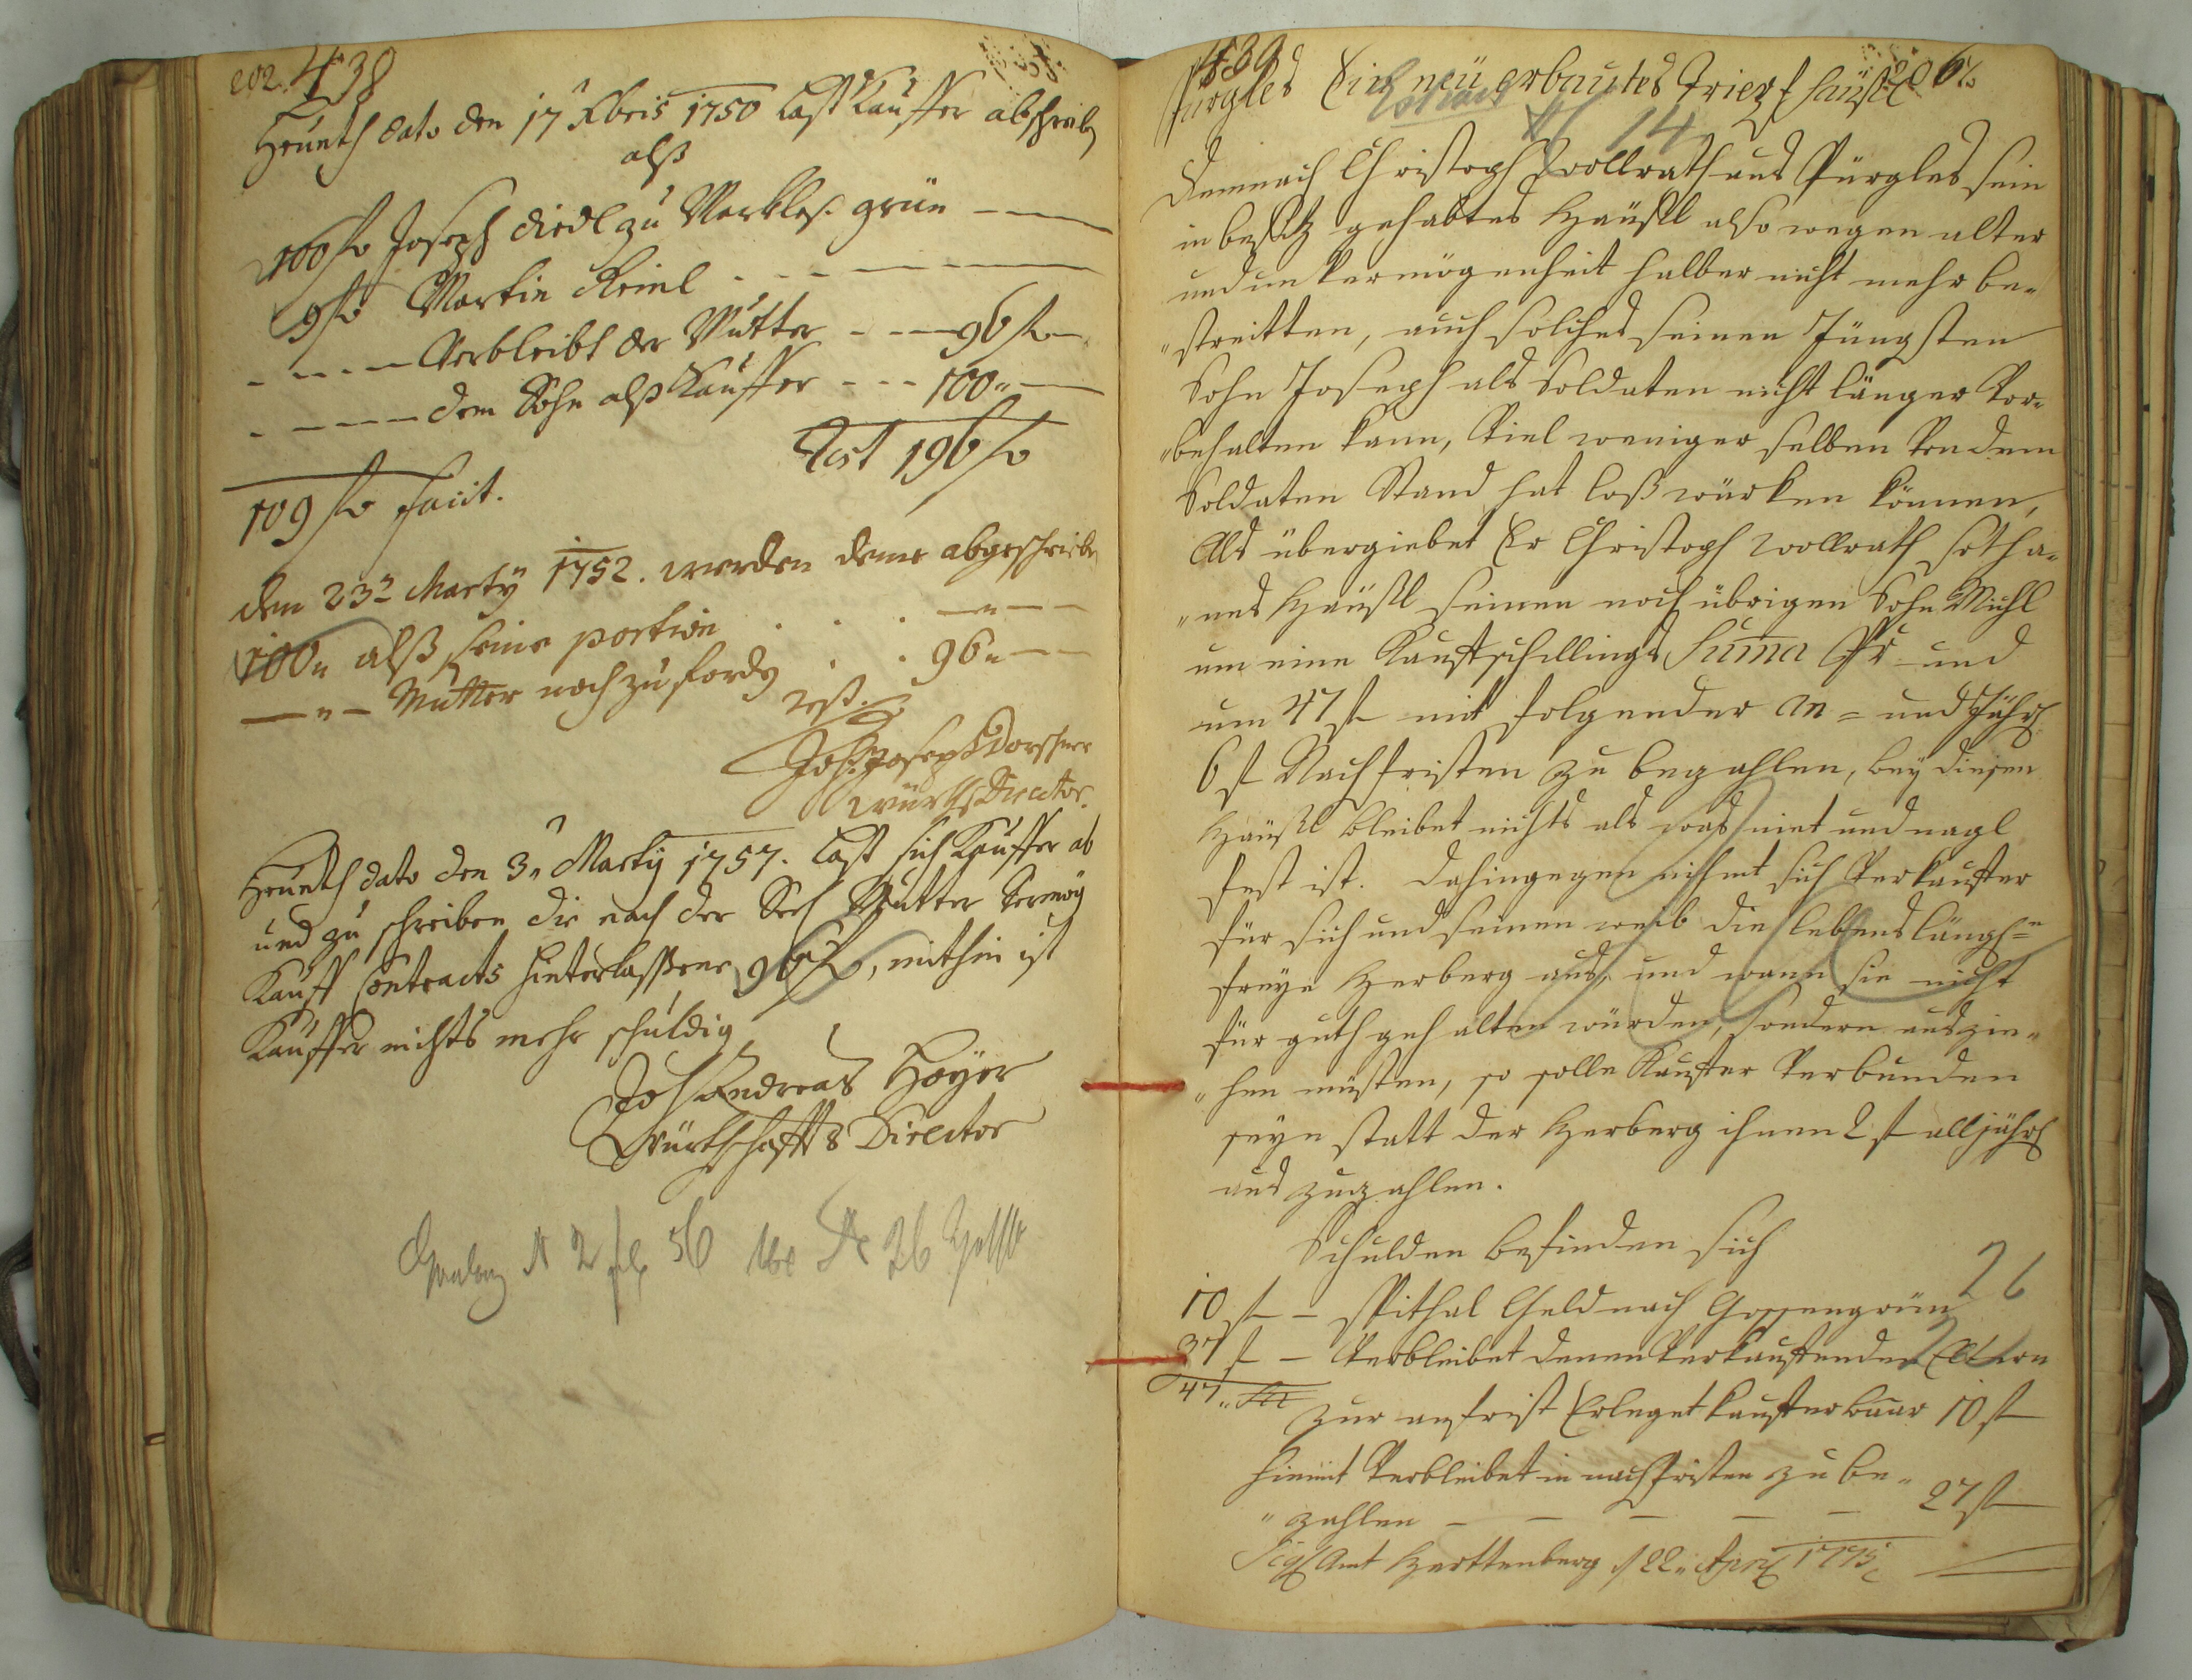 202. 438
Heünth dato den 17 Xbris 1750 last Kauffer abschreib
alß
100 fl Joseph diedl zu Markles grün
9 fl Martin Reinl
Verbleibt der Mutter 96 fl
dem Sohn alß Kauffer 100
Rest 196 fl
109 fl facit.
den 23 Marty 1752. werden deme abgeschrieb
100 alß seine portion
Mutter noch zu fordg 96
Rest
Joh: Joseph Dorschner
würths Director.
Heünth dato den 3 Marty 1757. last sich Kauffer ab
und zu schreiben die nach der Seel Mutter vermög
Kauff Contracts hinterlassene 96 fl, mithin ist
Kauffer nichts mehr schuldig
Joh Andreas Hoyer
Würthschaffts Director
2 56 26
439 206
pürgles Ein neü erbautes häußl
14
Demnach Christoph Wollrath aus Pürgles sein
in besitz gehabtes Häußl also wegen alter
und unvermögenheit halber nicht mehr be-
"streitten, auch solches seinen Jüngsten
Sohn Joseph als Soldaten nicht länger vor-
"behalten kann, viel weniger selben von dem
Soldaten Stand hat loß würken können,
Als übergiebet Er Christoph Wollrath sotha-
"nes Häußl seinen noch übrigen Sohn Michl
um eine Kaufschillings Suma Pr und
um 47 fl mit folgender an= und Jährl
6 fl Nachfristen zu bezahlen, bey diesen
Häußl bleibet nichts als was niet und nagl
fest ist. Dahingegen nihmt sich Verkauffer
für sich und seinen weib die lebenslängl
freye Herberg aus, und wann sie nicht
für guth gehalten würden, sondern auszie-
"hen müsten, so solle Kauffer verbunden
seyn statt der Herberg ihnen 2 fl alljährl
aus zuzahlen.
Schulden befinden sich
26
10 fl – Spithal Geld nach Gossengrün
37 fl – Verbleibet denen verkauffenden Eltern
47
zur anfrist Erleget Kauffer baar 10 fl
hiemit Verbleibet in nachfristen zu be-
"zahlen 27 fl
Sigl Amt Harttenberg d 22 April 1775